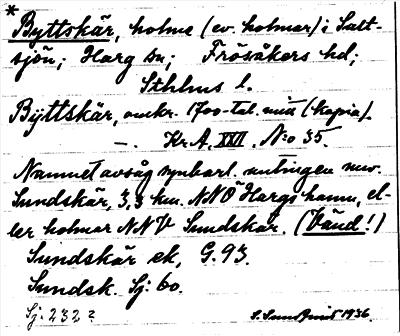 * Byttskär, holme (ev. holmar) i Salt-
sjön; Harg sn; Frösåkers hd;
Sthlms l.
Byttskär, omkr. 1700-tal. mitt (kopia).
—. Kr. A. XXII. No 35.
Namnet avsåg synbarl. antingen nuv.
Sundskär, 3,3 km. NNÖ Hargs hamn, el-
ler holmar NNV Sundskär. (Vänd!)
Sundskär ek, G. 93.
Sundsk. Sj: 60.
Sj. 232 ?
1936